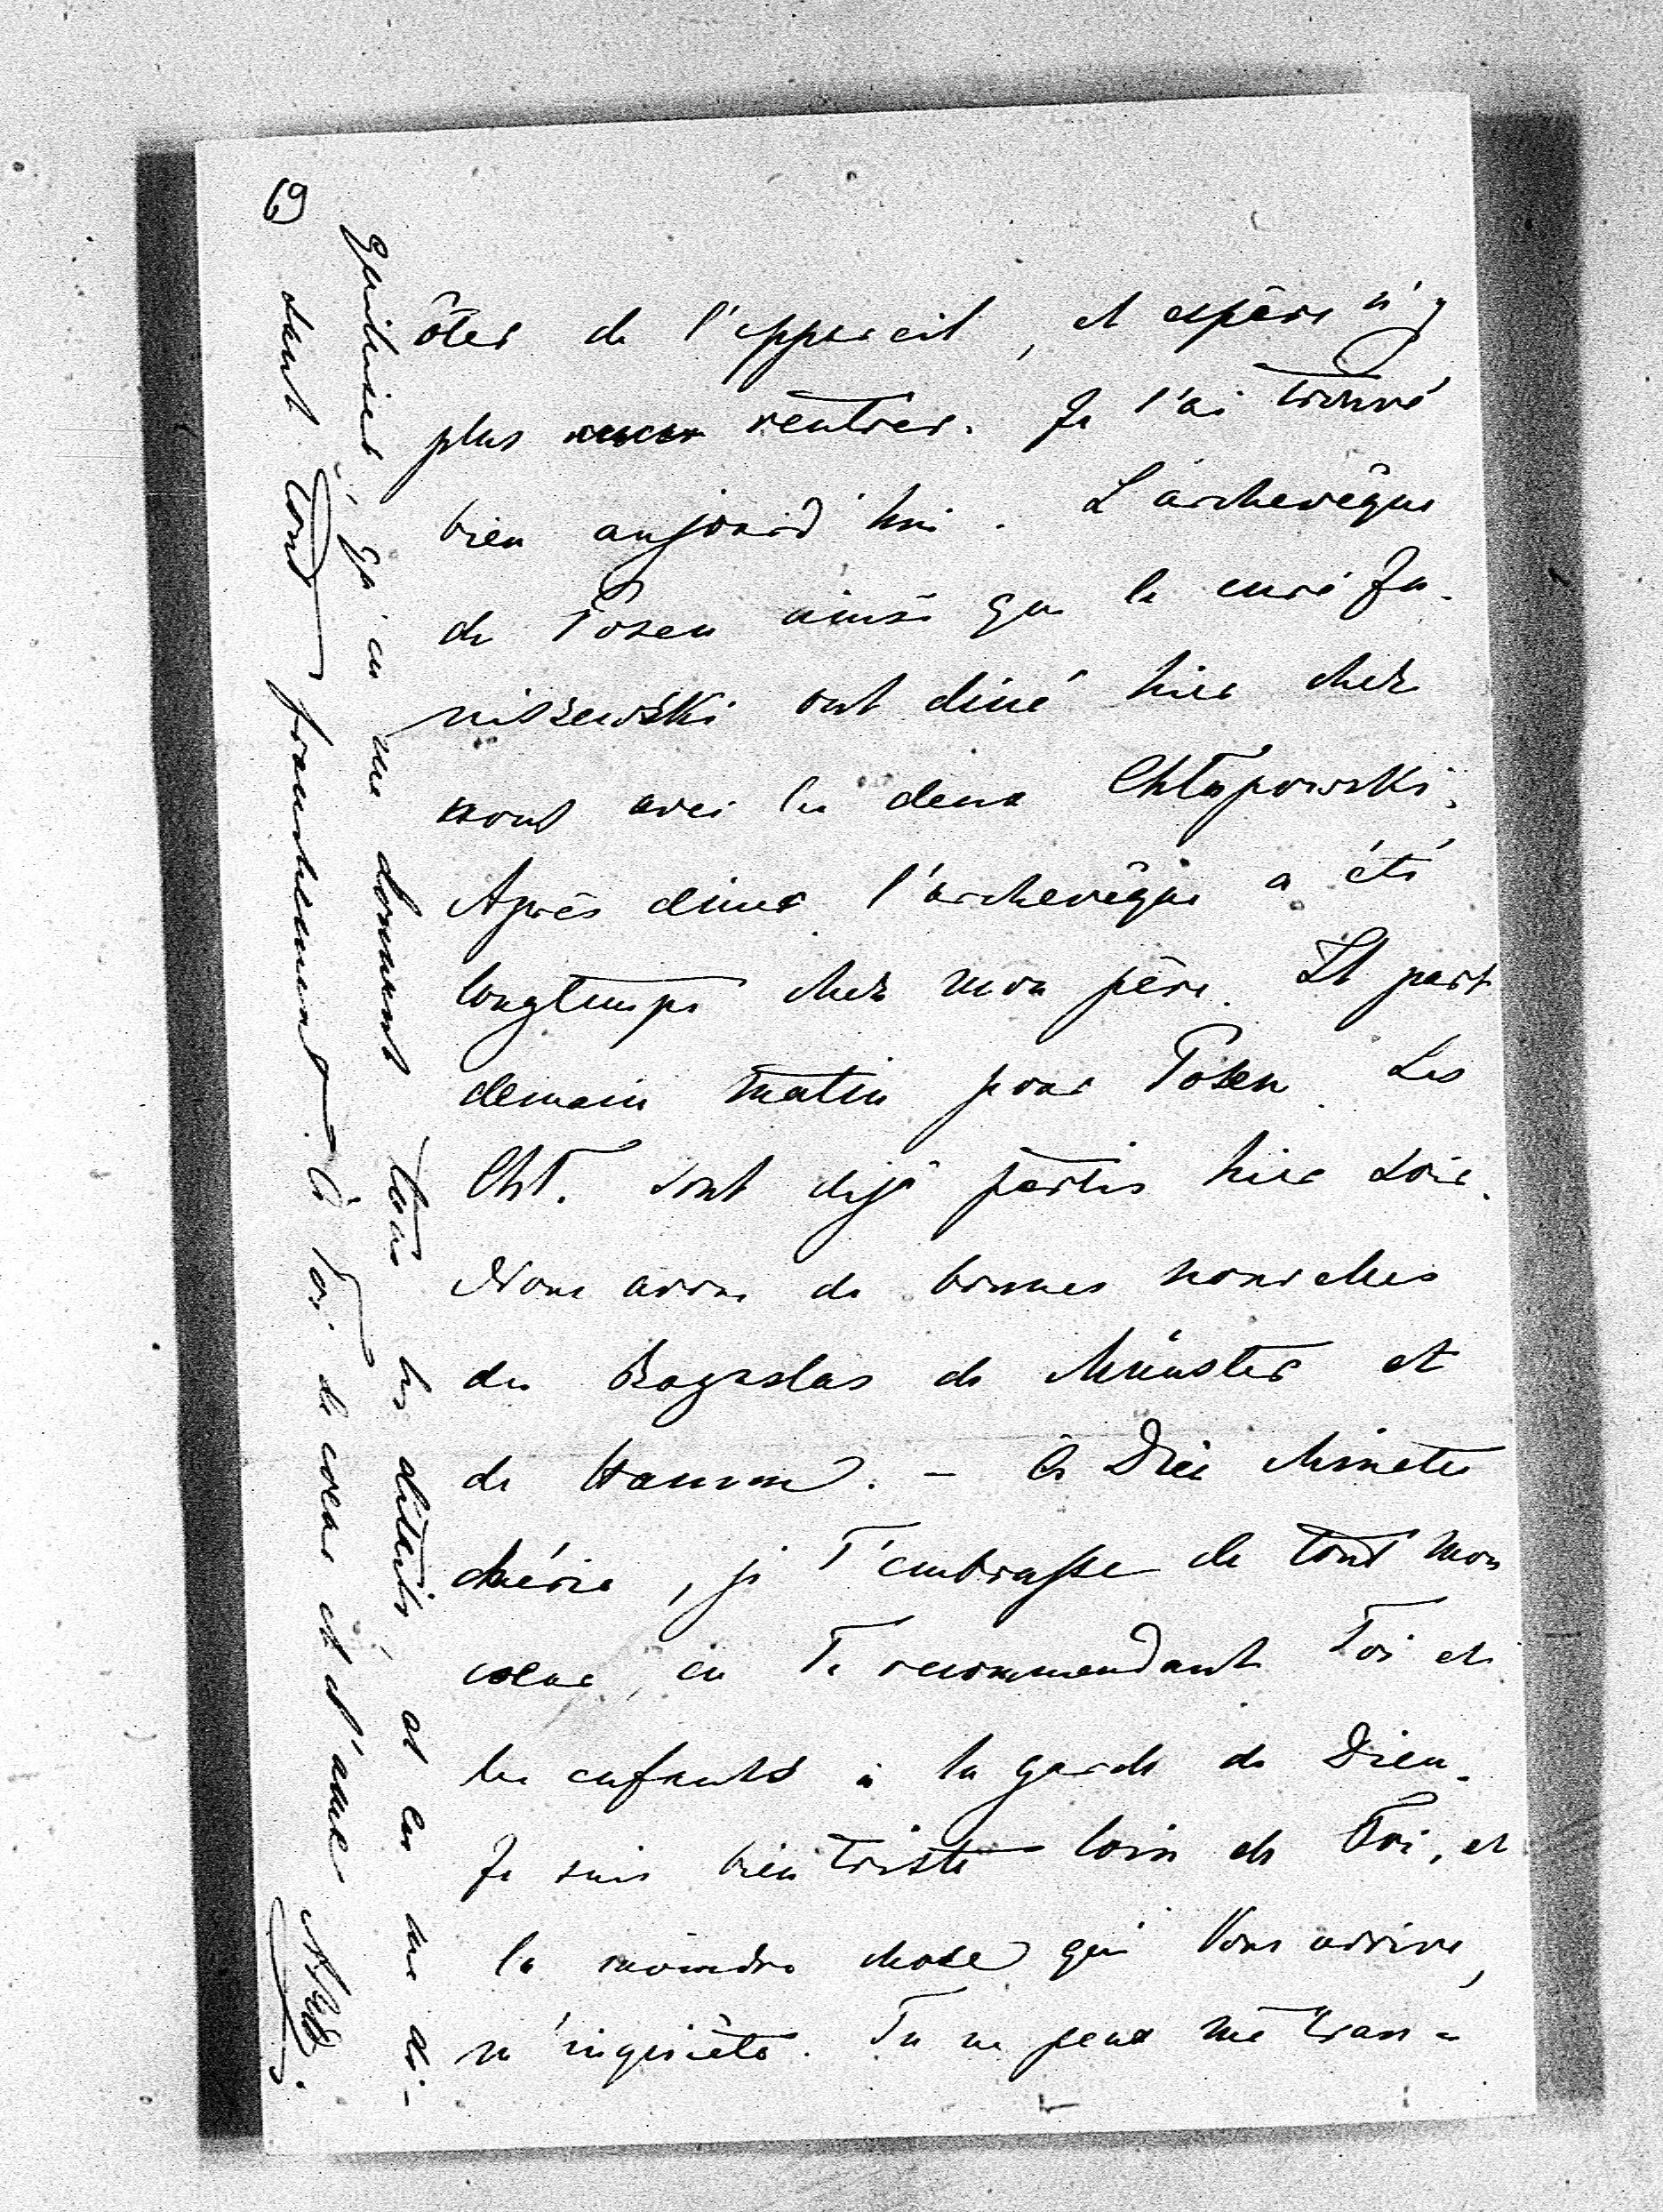 69
ôter de l'appareil, et espère n'y
plus rentrer. Je l'ai trouvé
bien aujourd'hui. L'archevêque
de Posen ainsi que le curé Ja-
niszewski ont diné hier chez
nous avec les deux Chłapowski.
Après diner l'archevêque a été
longtemps chez mon père. Il part
demain matin pour Posen. Les
Chł. sont déjà partis hier soir.
Nous avons de bonnes nouvelles
des Bogaslas de Münster et
de . – à Dieu Minette
chérie, je T'embrasse de tout mon
coeur en Te recommandant Toi et
les enfants à la garde de Dieu.
Je suis bien triste loin de Toi, et
la moindre chose qui Vous arrive,
m'inquiète. Tu ne peux me tran-
quiliser, qu'en me donnant tous les détails, et en me di-
sant tout franchement. à Toi de coeur et d'ame